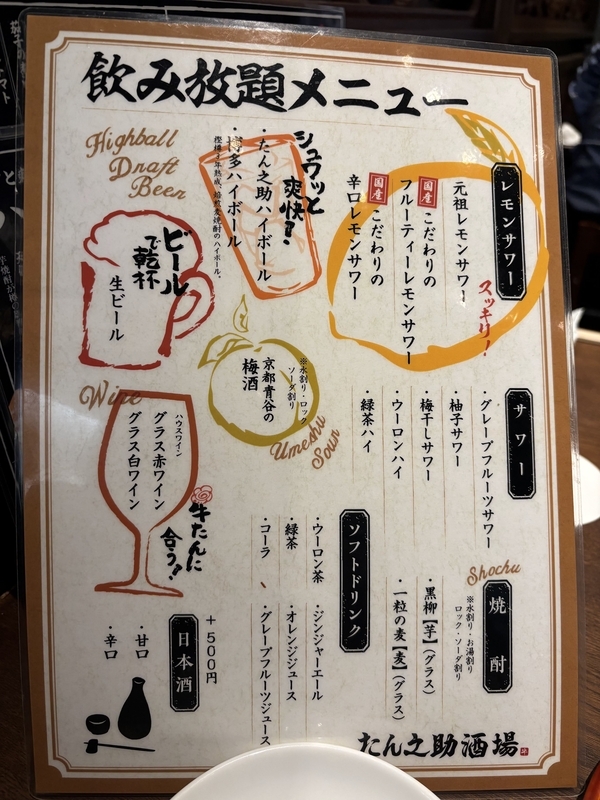 飲み放題メニュー
レモンサワー
元祖レモンサワー
国産
こだわりの
フルーティーレモンサワー
国産
こだわりの
辛口レモンサワー
スッキリ!
シュワッと
爽快!
・たん之助ハイボール
・博多ハイボール
樫樽3年熟成、焙煎麦焼酎のハイボール。
Highball
Draft
Beer
ビール
で乾杯
生ビール
サワー
・グレープフルーツサワー
・柚子サワー
・梅干しサワー
・ウーロンハイ
・緑茶ハイ
※水割り・ロック
ソーダ割り
京都青谷の
梅酒
Umeshu
Soun
Wine
ハウスワイン
グラス赤ワイン
グラス白ワイン
牛たんに
合う!
Shochu
焼酎
※水割り・お湯割り
ロック・ソーダ割り
・黒柳【芋】(グラス)
・一粒の麦【麦】(グラス)
ソフトドリンク
・ウーロン茶
・緑茶
・コーラ
・ジンジャーエール
・オレンジジュース
・グレープフルーツジュース
+500円
日本酒
・甘口
・辛口
たん之助酒場